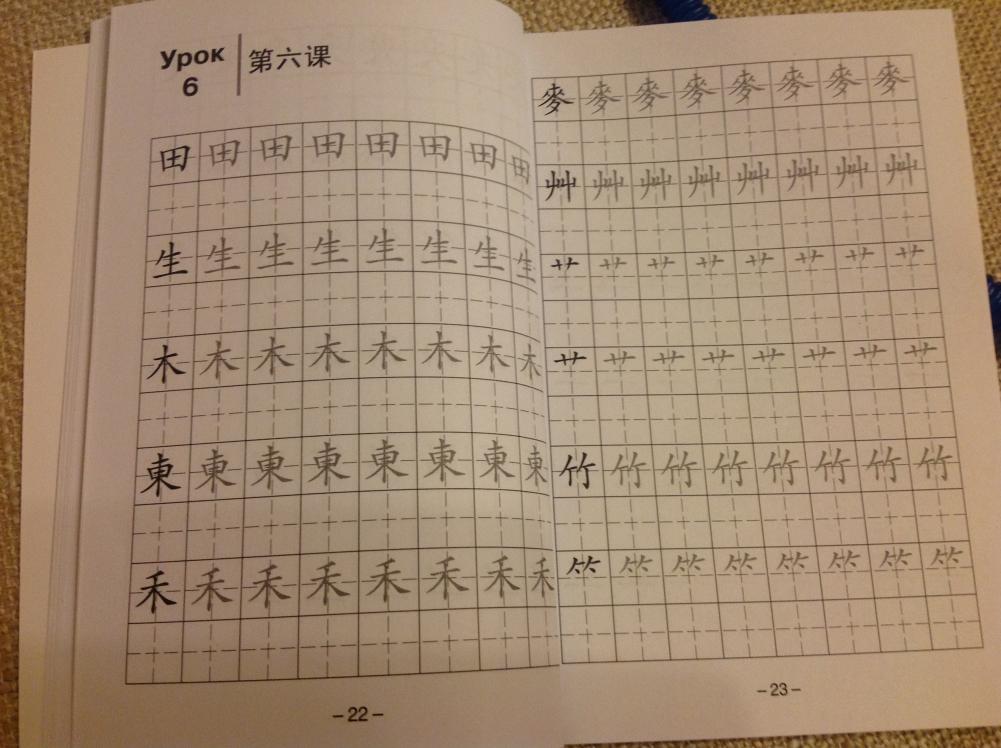 Урок
6
第六课
田田田田田田田田
生生生生生生生生
木木木木木木木木
東東東東東東東東
禾禾禾禾禾禾禾禾
–22–
麥麥麥麥麥麥麥麥
艸艸艸艸艸艸艸艸
艹艹艹艹艹艹艹艹
艹艹艹艹艹艹艹艹
竹竹竹竹竹竹竹竹
⺮⺮⺮⺮⺮⺮⺮⺮
–23–